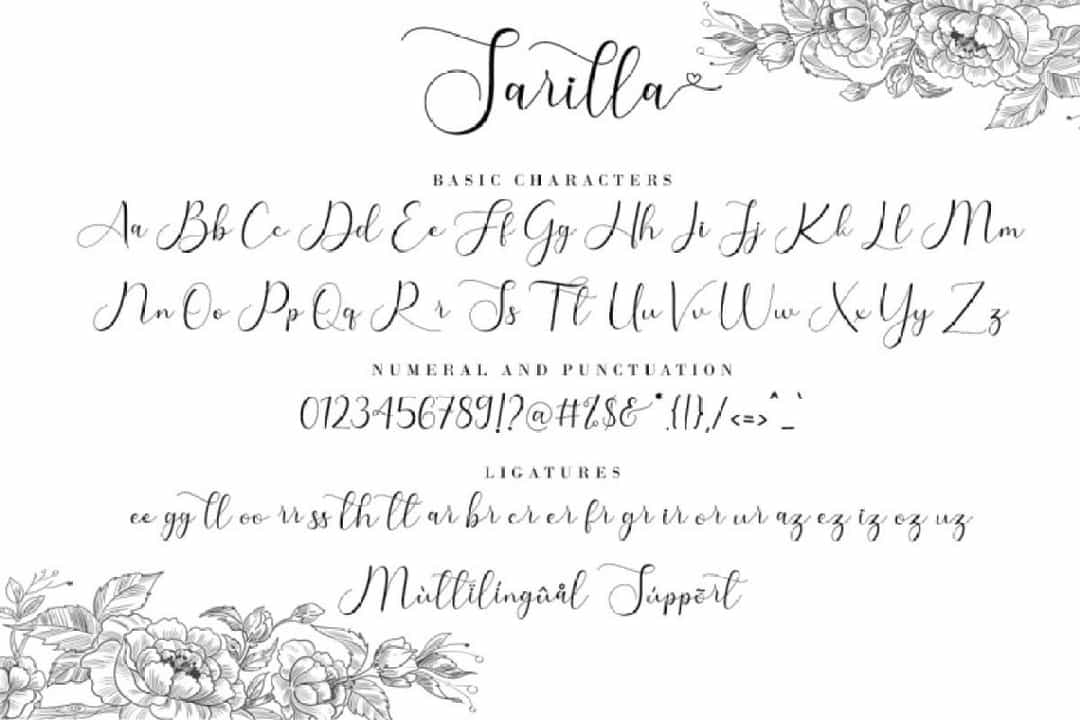 Sarilla
BASIC CHARACTERS
Aa Bb Cc Dd Ee Ff Gg Hh Ii Jj Kk Ll Mm
Nn Oo Pp Qq Rr Ss Tt Uu Vv Ww Xx Yy Zz
NUMERAL AND PUNCTUATION
0123456789!?@#%$&*.{|},/<=>^_`
LIGATURES
ee gg ll oo rr ss th tt ar br cr er fr gr ir or ur az ez iz oz uz
Mùltïlíngûål Súppõrt